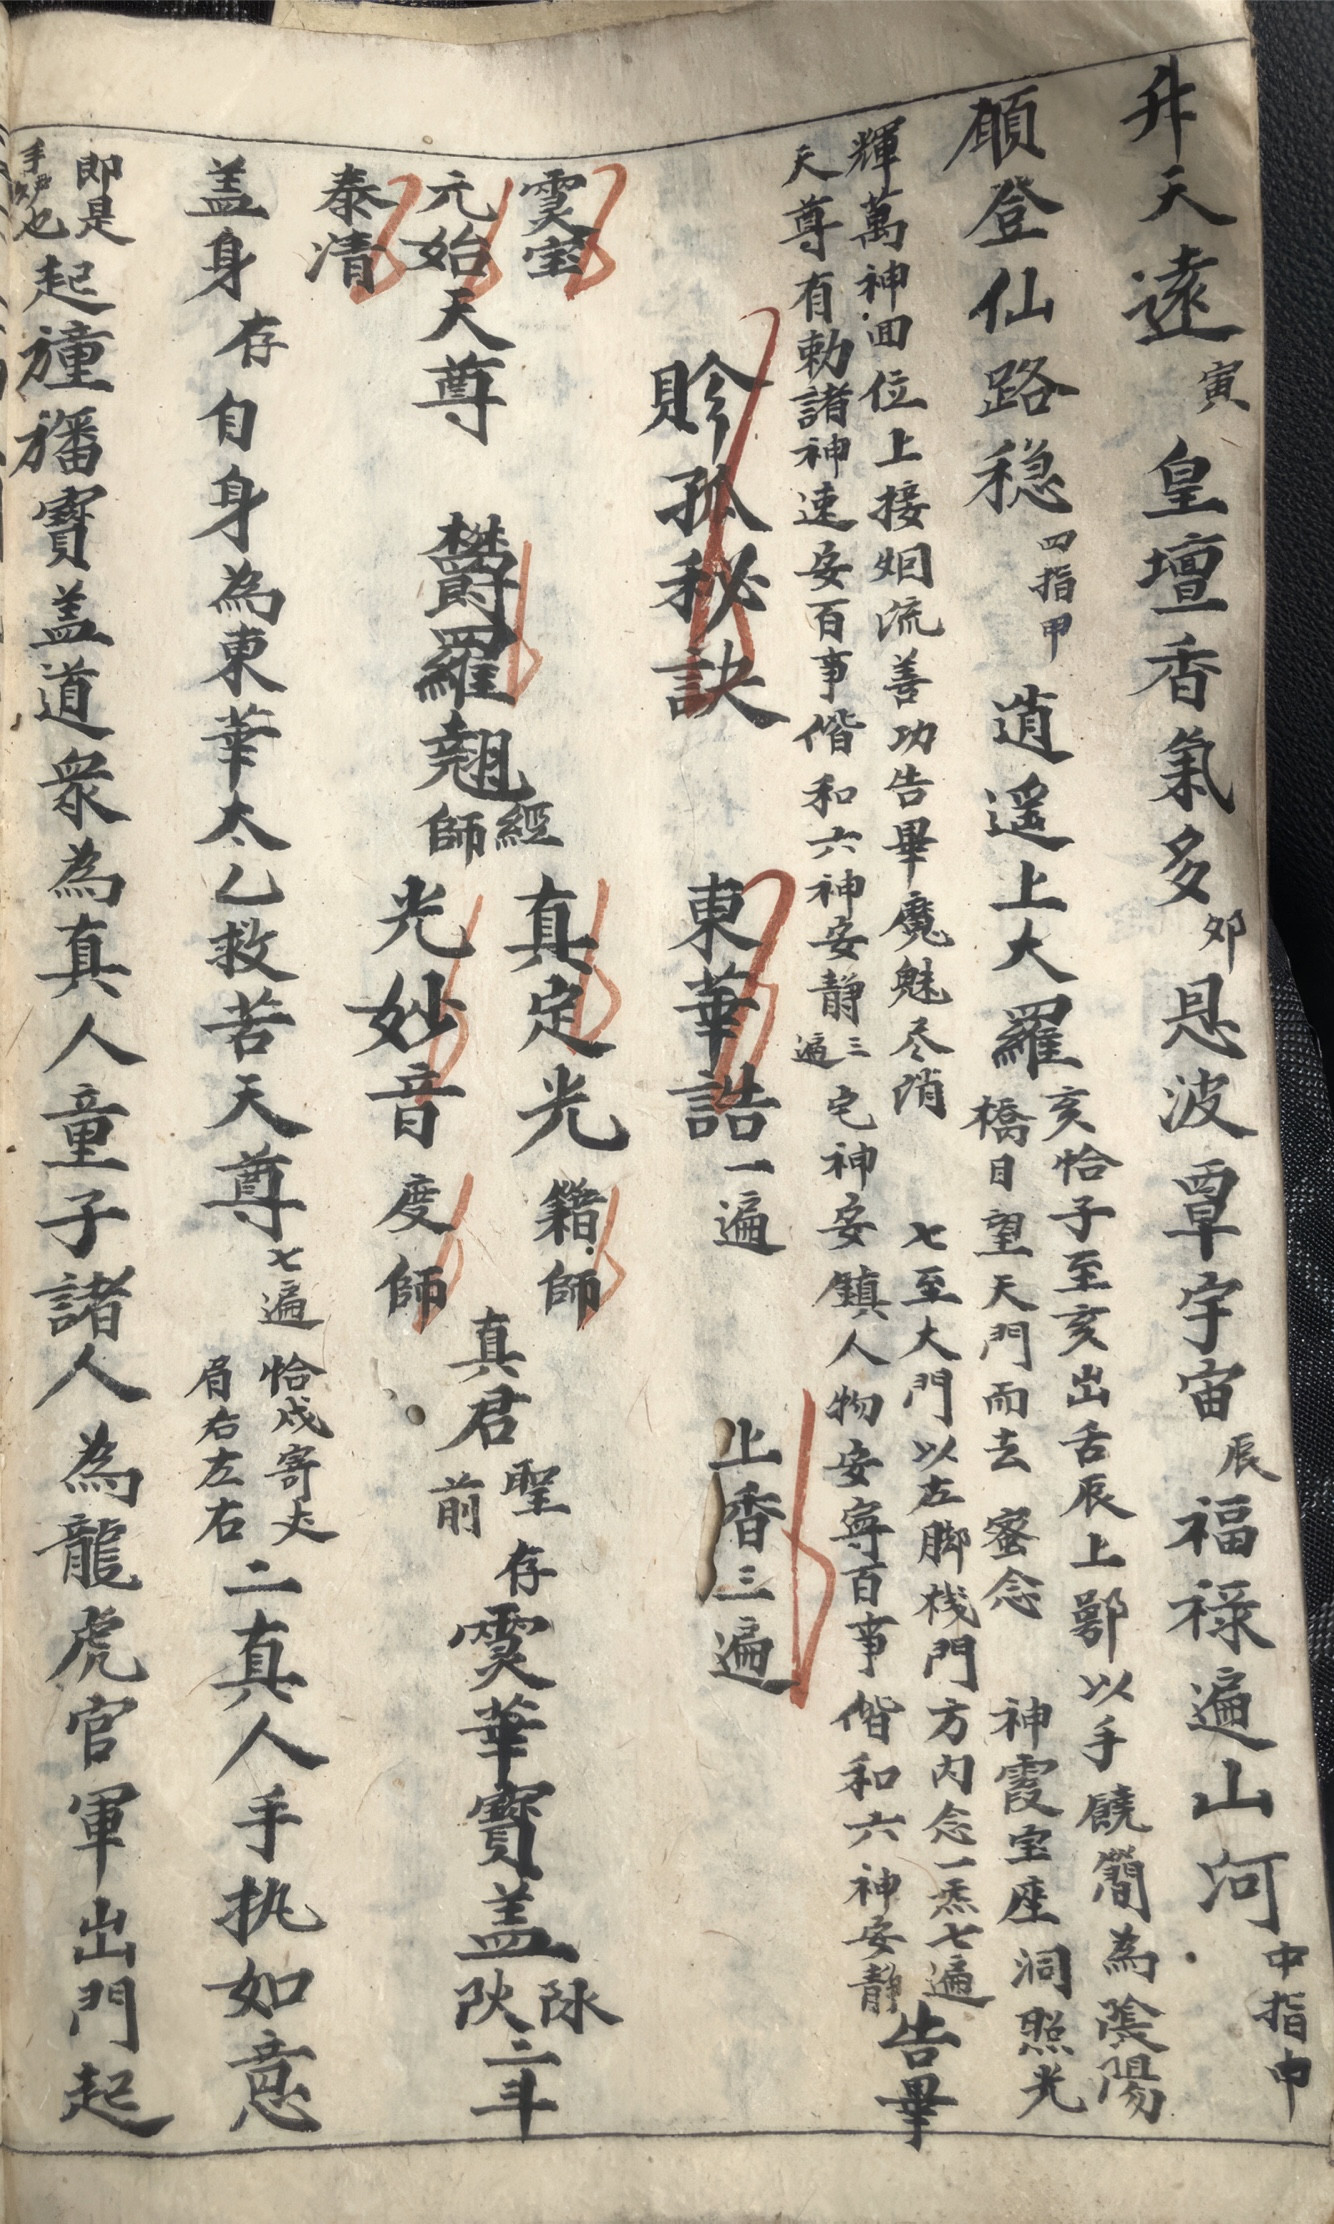 升天遠寅皇壇香氣多卯恩波覃宇宙辰福禄遍山河中指中
願登仙路穏四指甲逍遥上大羅亥恰子至亥出舌辰上鄂以手饒簡為陰陽
橋目望天門而去蜜念神霞宝座洞照光
輝萬神囬位上接姻流善功告畢魔魅尽消七至大門以左脚栈門方内念一炁七遍
天尊有勅諸神速安百事偕和六神安静三遍宅神安鎮人物安寧百事偕和六神安静告畢
賒孤秘訣東華誥一遍上香三遍
霊宝
元始天尊欝羅翹
泰清
經師真定光籍師
光妙音度師
真君聖前存霊華寶盖
二斗
盖身存自身為東華太乙救苦天尊七遍恰戌寄丈
肩右左右
二真人手执如意
即是
手炉也
起幢旛寶盖道衆為真人童子諸人為龍虎官軍出門起